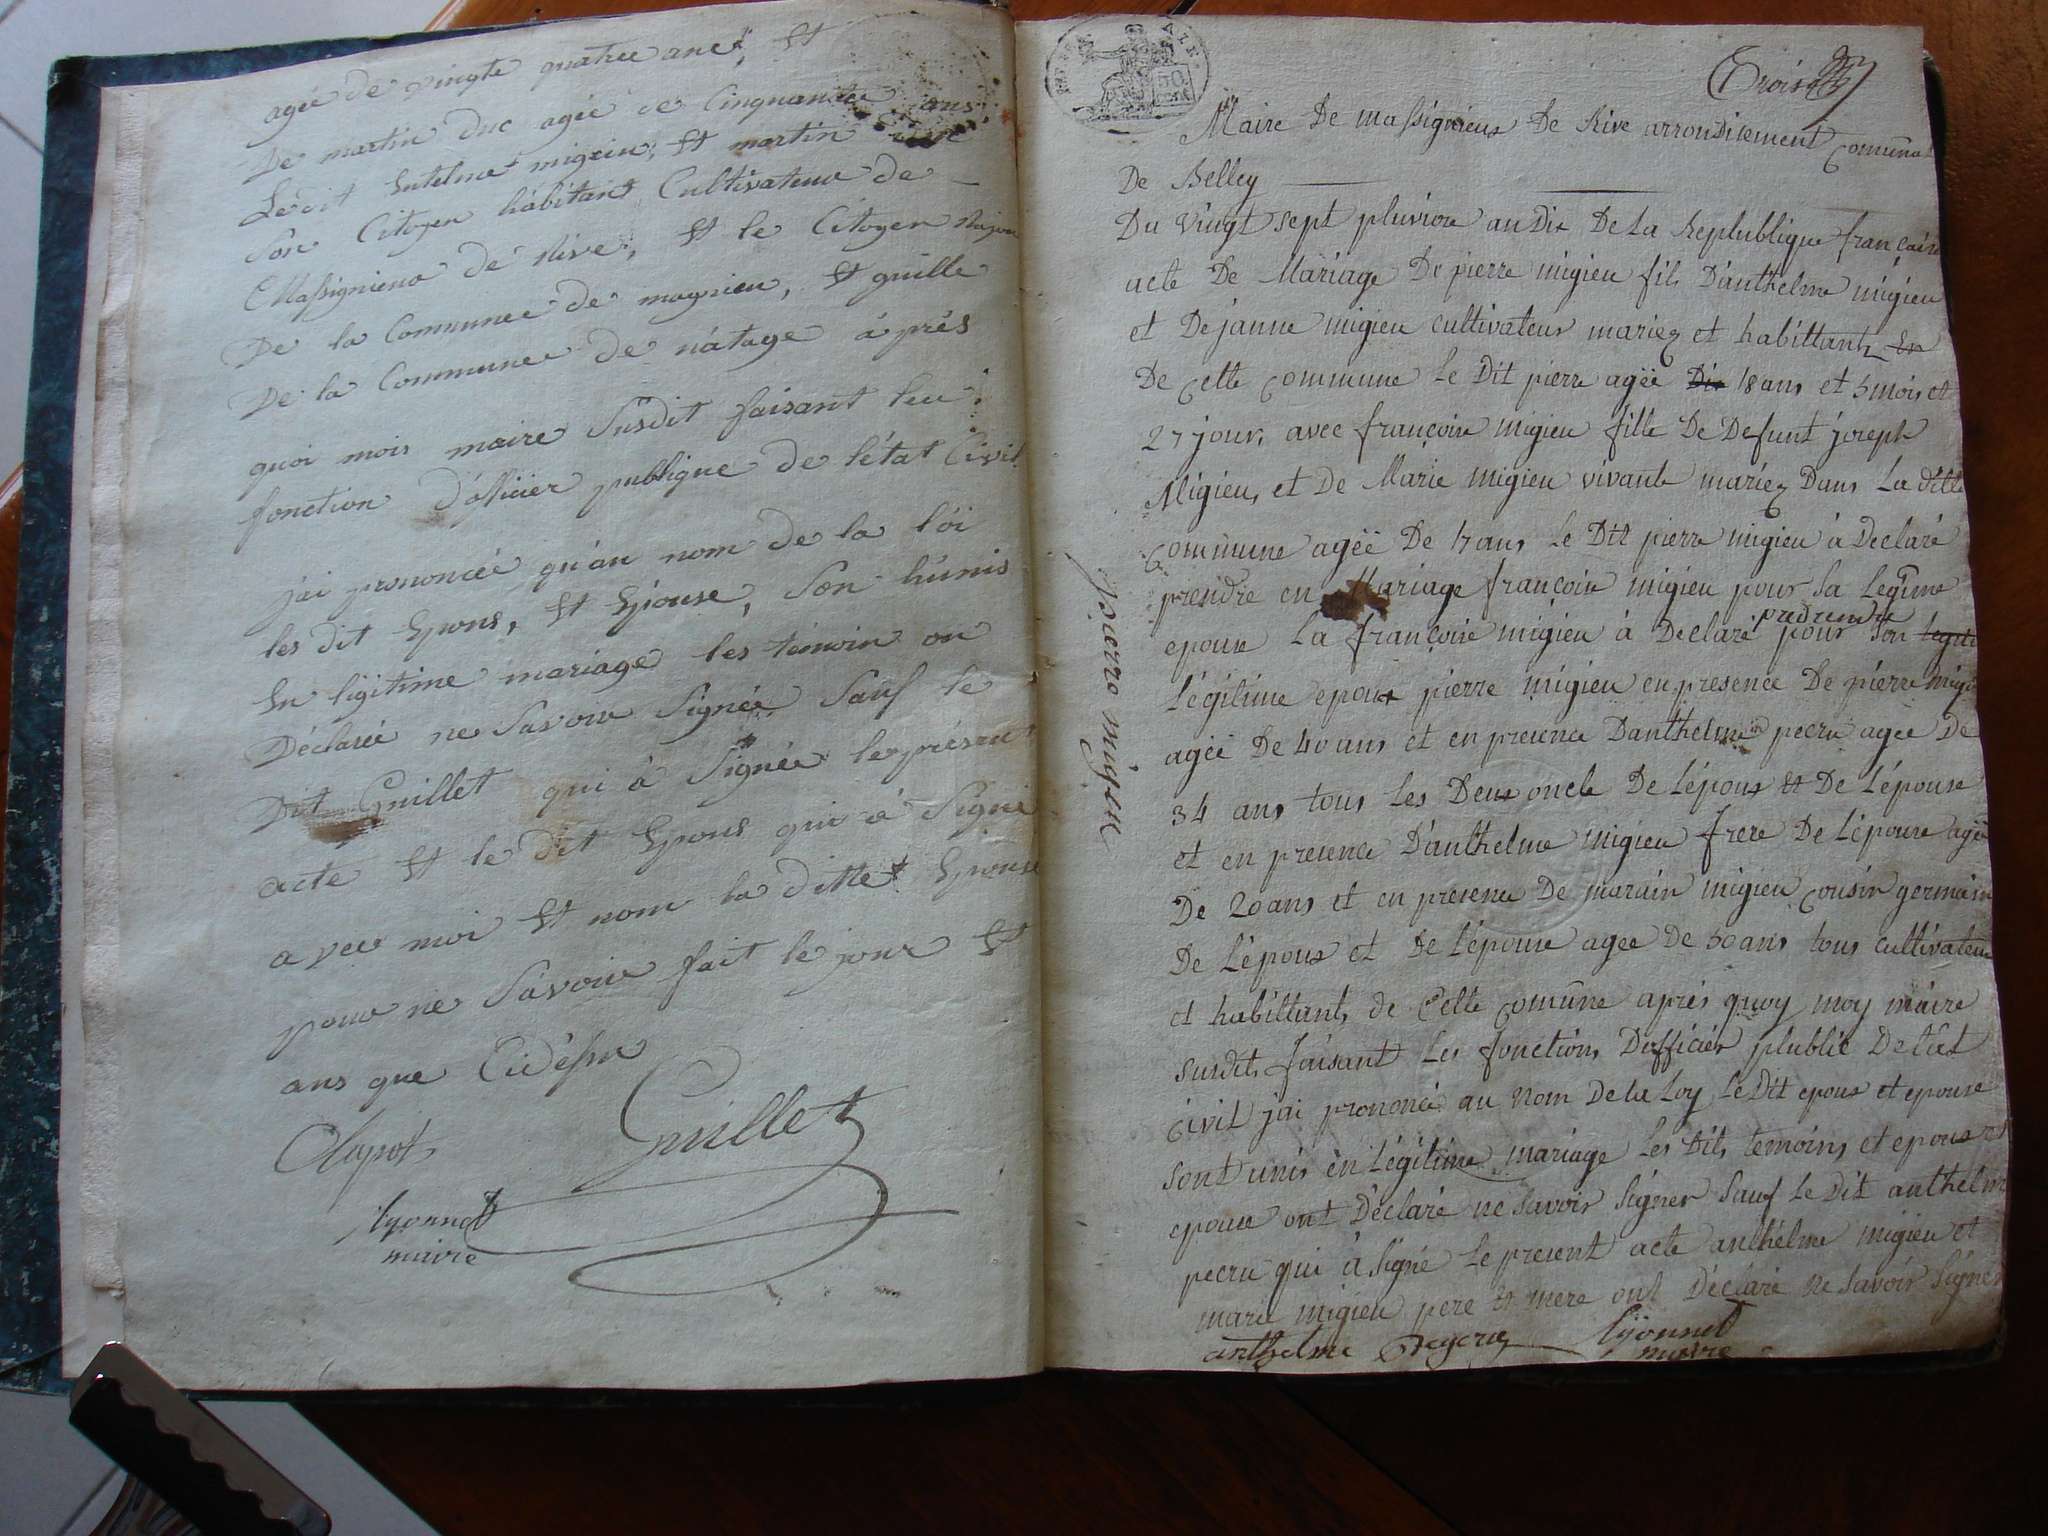 agée de vingte quatree anet, Et
De martin duc agée de Cinquantee ans
Le dit Entelme migieu, Et martin
Son Citoyen habitant Cultivateur de
Massignieux de Rive, Et le Citoyen
De la Communee de magnieu, Et guille
De la Communee de nátage á prés
quoi mois maire Susdit faisant leu
fonction d'officier publique de l'état Civil
j'ai prononcée qu'au nom de la lói
les dit Epous, Et Epouse, Son húnis
En ligitime mariage les témoin on
Déclarée ne Savoir Signée Sauf le
Dit Guillet qui á Signée le présent
acte Et le dit Epous qui á Signé
avec moi Et nom la ditte Epouse
pour ne Savoir fait le jour Et
ans que Cidéssu
Clapot Guillet
lyonnet
maire
Trois
Maire De massignieux De Rive arrondisement comūnal
De Belley
Du Vingt sept pluviose an Dix De La Replublique françaisse
acte De Mariage De pierre migieu fils D'anthelme migieu
et De janne migieu cultivateur mariez et habittants En
De cette commune Le Dit pierre agéé Dix 18 ans et 5 mois et
27 jours, avec françoise migieu fille De Defunt joseph
Migieu, et De Marie migieu vivante mariez Dans La ditte
commune agéé De 17 ans Le Dit pierre migieu à Declaré
prendre en Mariage françoise migieu pour sa Legitme
epouse La françoise migieu à Declaré predrendre pour son legiti
Légitime epoux pierre migieu en presence De pierre migieu
agéé De 40 ans et en presence Danthelme pecru agée De
34 ans tous Les Deux oncle De L'époux et De L'épouse
et en presence D'anthelme migieu frere De L'épouse agéé
De 20 ans et en presence De marain migieu cousin germain
De L'épous et De L'épouse agee De 50 ans tous cultivateur
et habittants de Cette comūne aprés quoy moy maire
susdit, faisant Les fonctions D'officier plublic De L'état
civil j'ai prononcé au nom De La Loy Le Dit epoux et epouse
sont unis en Légitime mariage Les Dits temoins et epoux et
epouse ont Déclaré ne savoir signer sauf Le Dit anthelme
pecru qui à signé Le present acte anthélme migieu et
marie migieu pere et mere ont Déclaré ne savoir signer
anthelme pegcru lyonnet
maire
pierre migeu